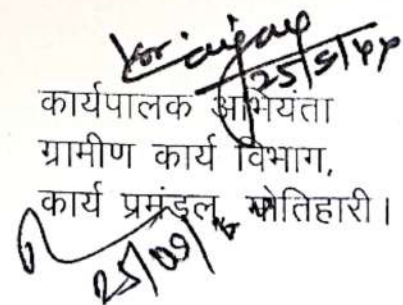 कार्यपालक अभियंता
ग्रामीण कार्य विभाग,
कार्य प्रमंडल, मोतिहारी।
25/09/